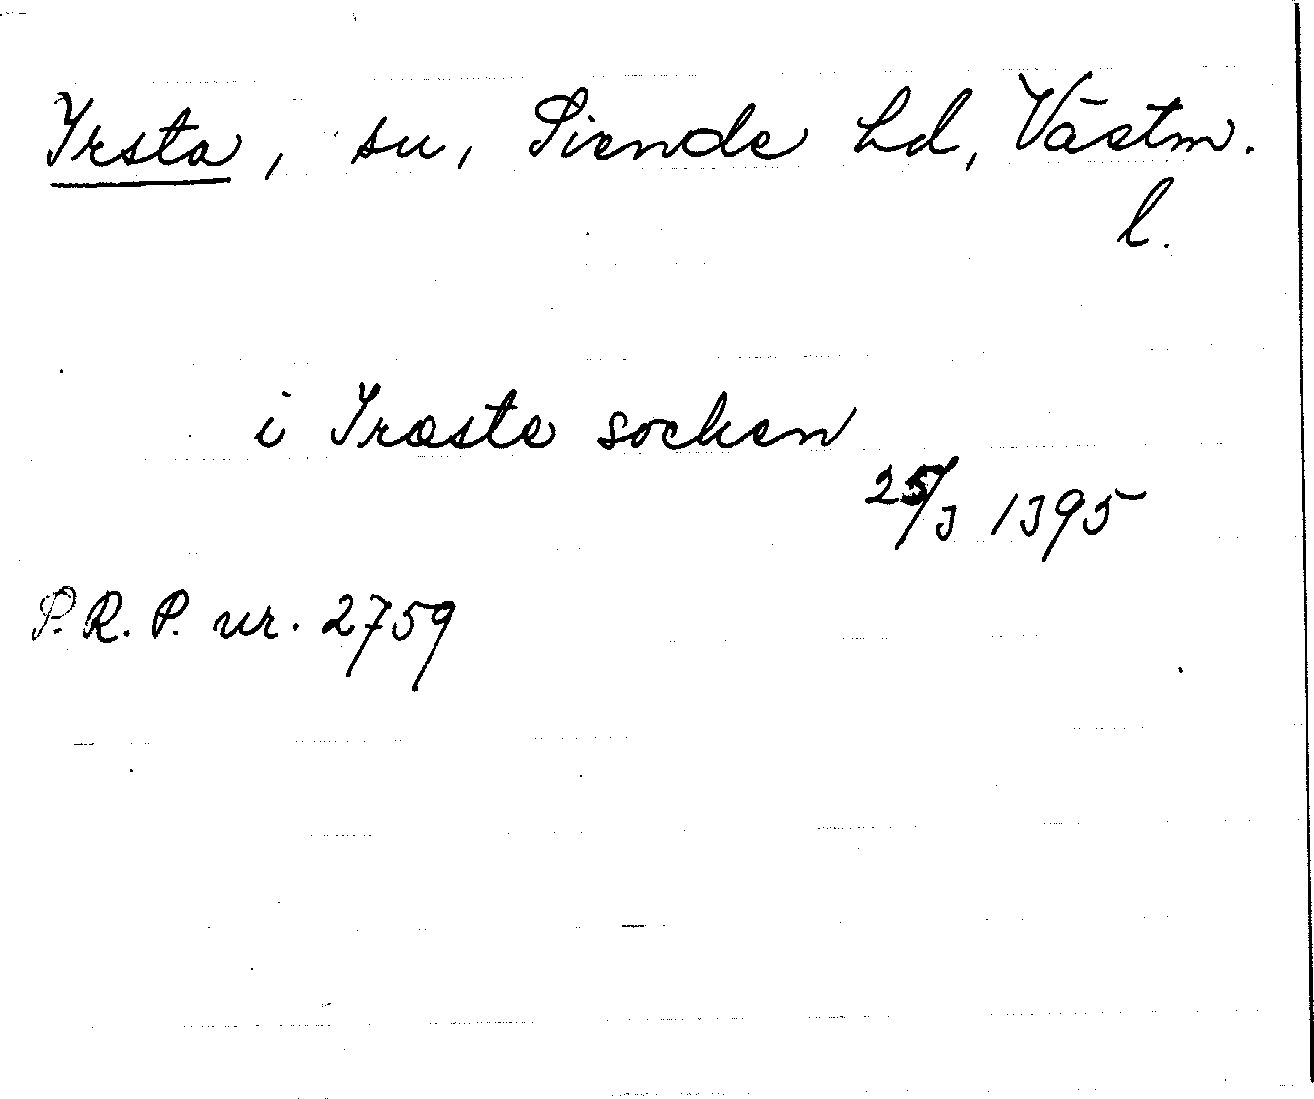 Irsta, sn, Siende hd, Västm.
l.
i Iræsta socken
25/3 1395
P.R.P. nr. 2759